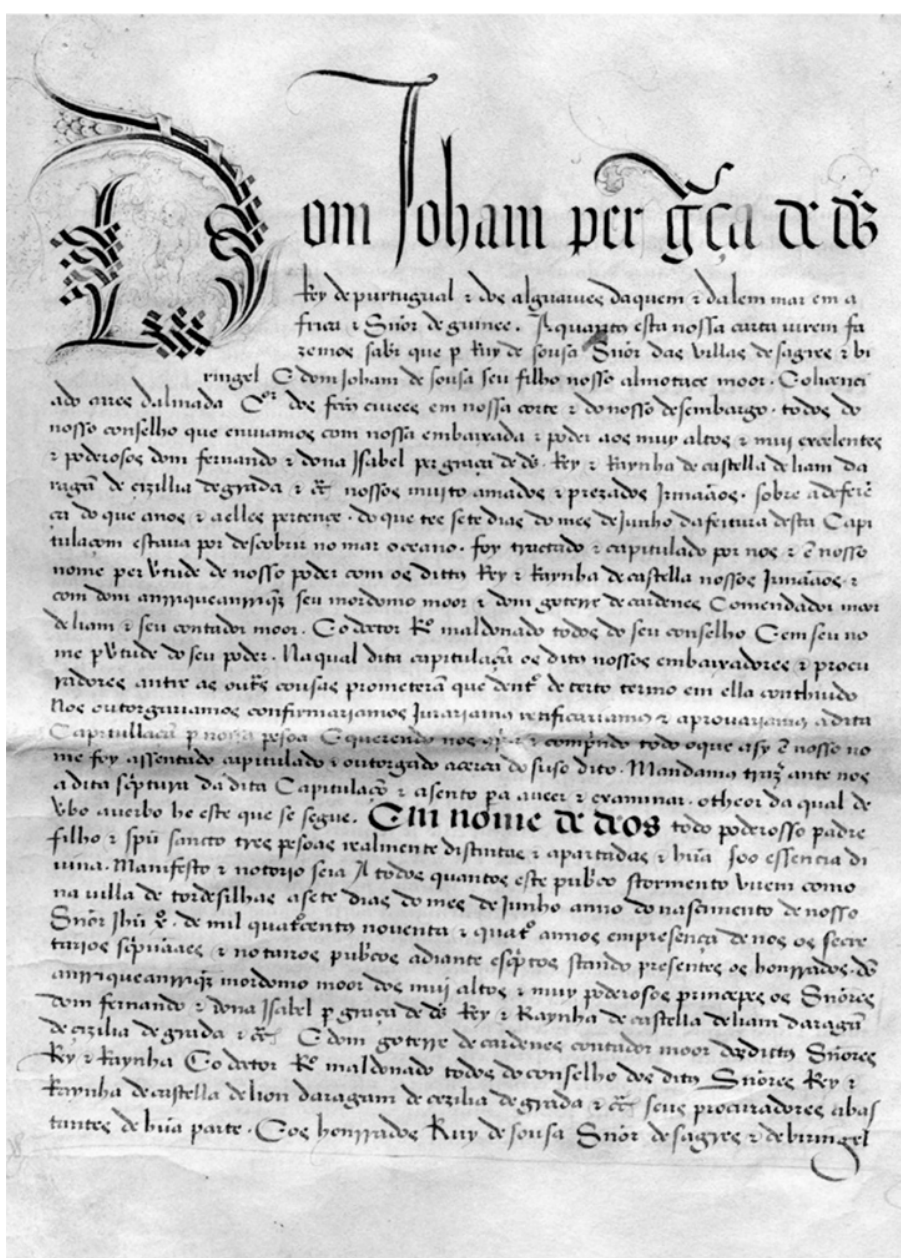 Dom Joham per gça de ds
Rey de purtugual ⁊ dos alguarues daquem ⁊ dalem mar em a
frica ⁊ Snõr de guinee. A quantos esta nossa carta virem fa
zemos sabr que p Ruy de sousa Snõr das villas de sagres ⁊ bi
ringel E dom Joham de sousa seu filho nosso almotace moor. E o licenci
ado aires dalmada Cor dos fectos ciuees em nossa corte ⁊ do nosso desembargo. todos do
nosso conselho que enuiamos com nossa embaixada ⁊ poder aos muy altos ⁊ muj excelentes
⁊ poderosos dom fernando ⁊ dona Isabel per graça de ds. Rey ⁊ Raynha de castella de liam da
ragã de cizillia de grãda ⁊ cet nossos muito amados ⁊ prezados Irmãaos. sobre a deferẽ
ça do que a nos ⁊ a elles pertençe. do que tee sete dias do mes de Junho da feitura desta Capi
tulaçom estaua por descobrir no mar oceano. foy tractado ⁊ capitulado por nos ⁊ ẽ nosso
nome per vtude de nosso poder com os dittos Rey ⁊ Raynha de castella nossos Irmãaos. ⁊
com dom anrrique anrriqz seu mordomo moor ⁊ dom goterre de cardenes Comendador moor
de liam ⁊ seu contador moor. E o doctor Ro maldonado todos do seu conselho E em seu no
me p vtude do seu poder. Na qual dita capitulaçã os ditos nossos embaixadores ⁊ procu
radores antre as outrs cousas prometerã que dento de certo termo em ella conthiudo
Nos outorgariamos confirmariamos Jurariamos retificariamos ⁊ aprouariamos a dita
Capitullaçã p nossa pesoa E querendo nos ⁊ comprindo todo o que asy ẽ nosso no
me foy assentado capitulado ⁊ outorgado acerca do suso dito. Mandamos trazr ante nos
a dita scptura da dita Capitulaçõ ⁊ asento pa a veer ⁊ examinar. o theor da qual de
vbo a verbo he este que se segue. Em nome de deos todo poderosso padre
filho ⁊ spũ sancto tres pesoas realmente distintas ⁊ apartadas ⁊ hũa soo essencia di
uina. Manifesto ⁊ notorio seia A todos quantos este pubrco stormento virem como
na villa de tordesilhas a sete dias do mes de Junho anno do nascimento de nosso
Snõr Jhũ xp. de mil quatrcentos nouenta ⁊ quato annos em presença de nos os secre
tarios scpuãaes ⁊ notairos pubrcos adiante escptos stando presentes os honrrados. dõ
anrrique anrriqz mordomo moor dos muj altos ⁊ muy poderosos princepes os Snõres
dom fernando ⁊ dona Isabel p graça de ds Rey ⁊ Raynha de castella de liam daragã
de cizilia de grãda ⁊ cet E dom goterre de cardenes contador moor dos dittos Snõres
Rey ⁊ Raynha E o doctor Ro maldonado todos do conselho dos ditos Snõres Rey ⁊
Raynha de castella de lion daragam de cezilia de grãda ⁊ cet seus procuradores abas
tantes de hũa parte. E os honrrados Ruy de sousa Snõr de sagres ⁊ de biringel